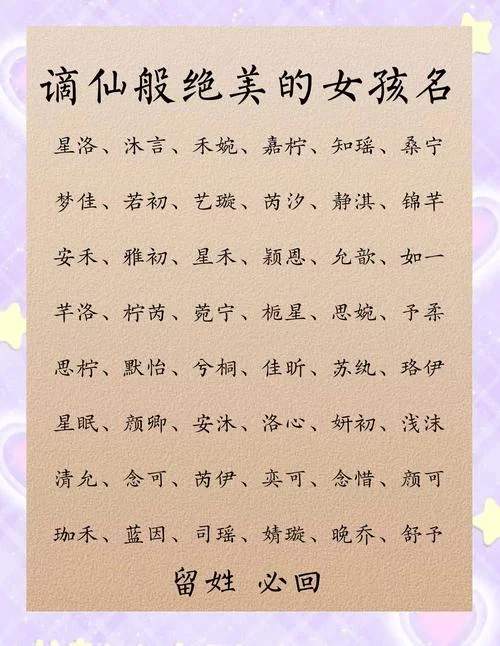 谪仙般绝美的女孩名
星洛、沐言、禾婉、嘉柠、知瑶、桑宁
梦佳、若初、艺璇、芮汐、静淇、锦芊
安禾、雅初、星禾、颖恩、允歆、如一
芊洛、柠芮、菀宁、栀星、思婉、予柔
思柠、默怡、兮桐、佳昕、苏纨、珞伊
星眠、颜卿、安沐、洛心、妍初、浅沫
清允、念可、芮伊、奕可、念惜、颜可
珈禾、蓝因、司瑶、婧璇、晚乔、舒予
留姓 必回